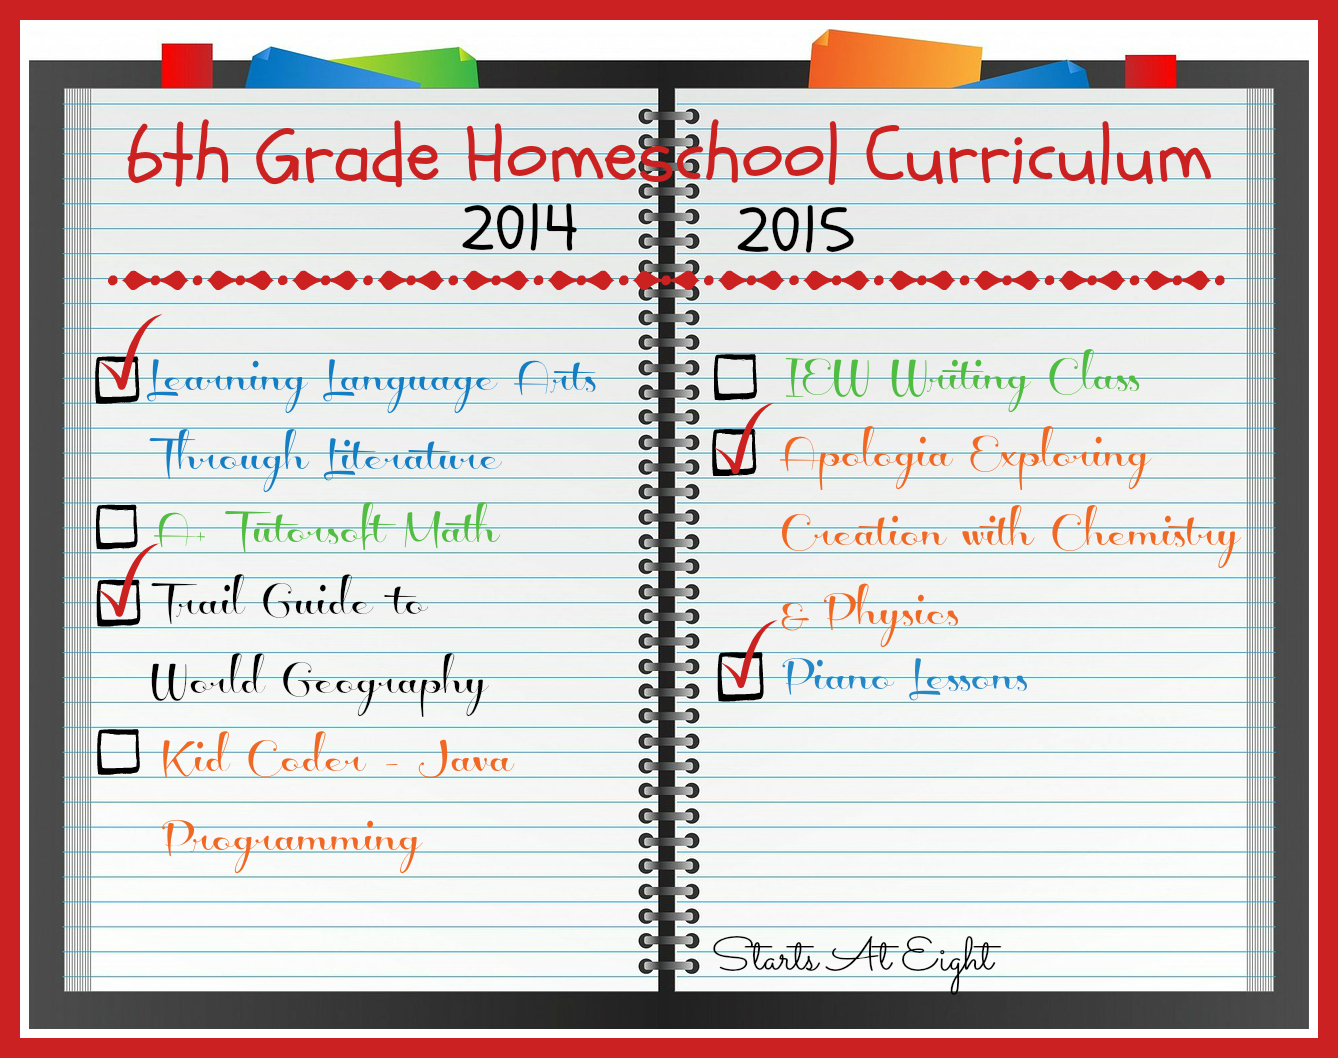 6th Grade Homeschool Curriculum
2014 2015
Learning Language Arts
Through Literature
A+ Tutorsoft Math
Trail Guide to
World Geography
Kid Coder - Java
Programming
IEW Writing Class
Apologia Exploring
Creation with Chemistry
& Physics
Piano Lessons
Starts At Eight